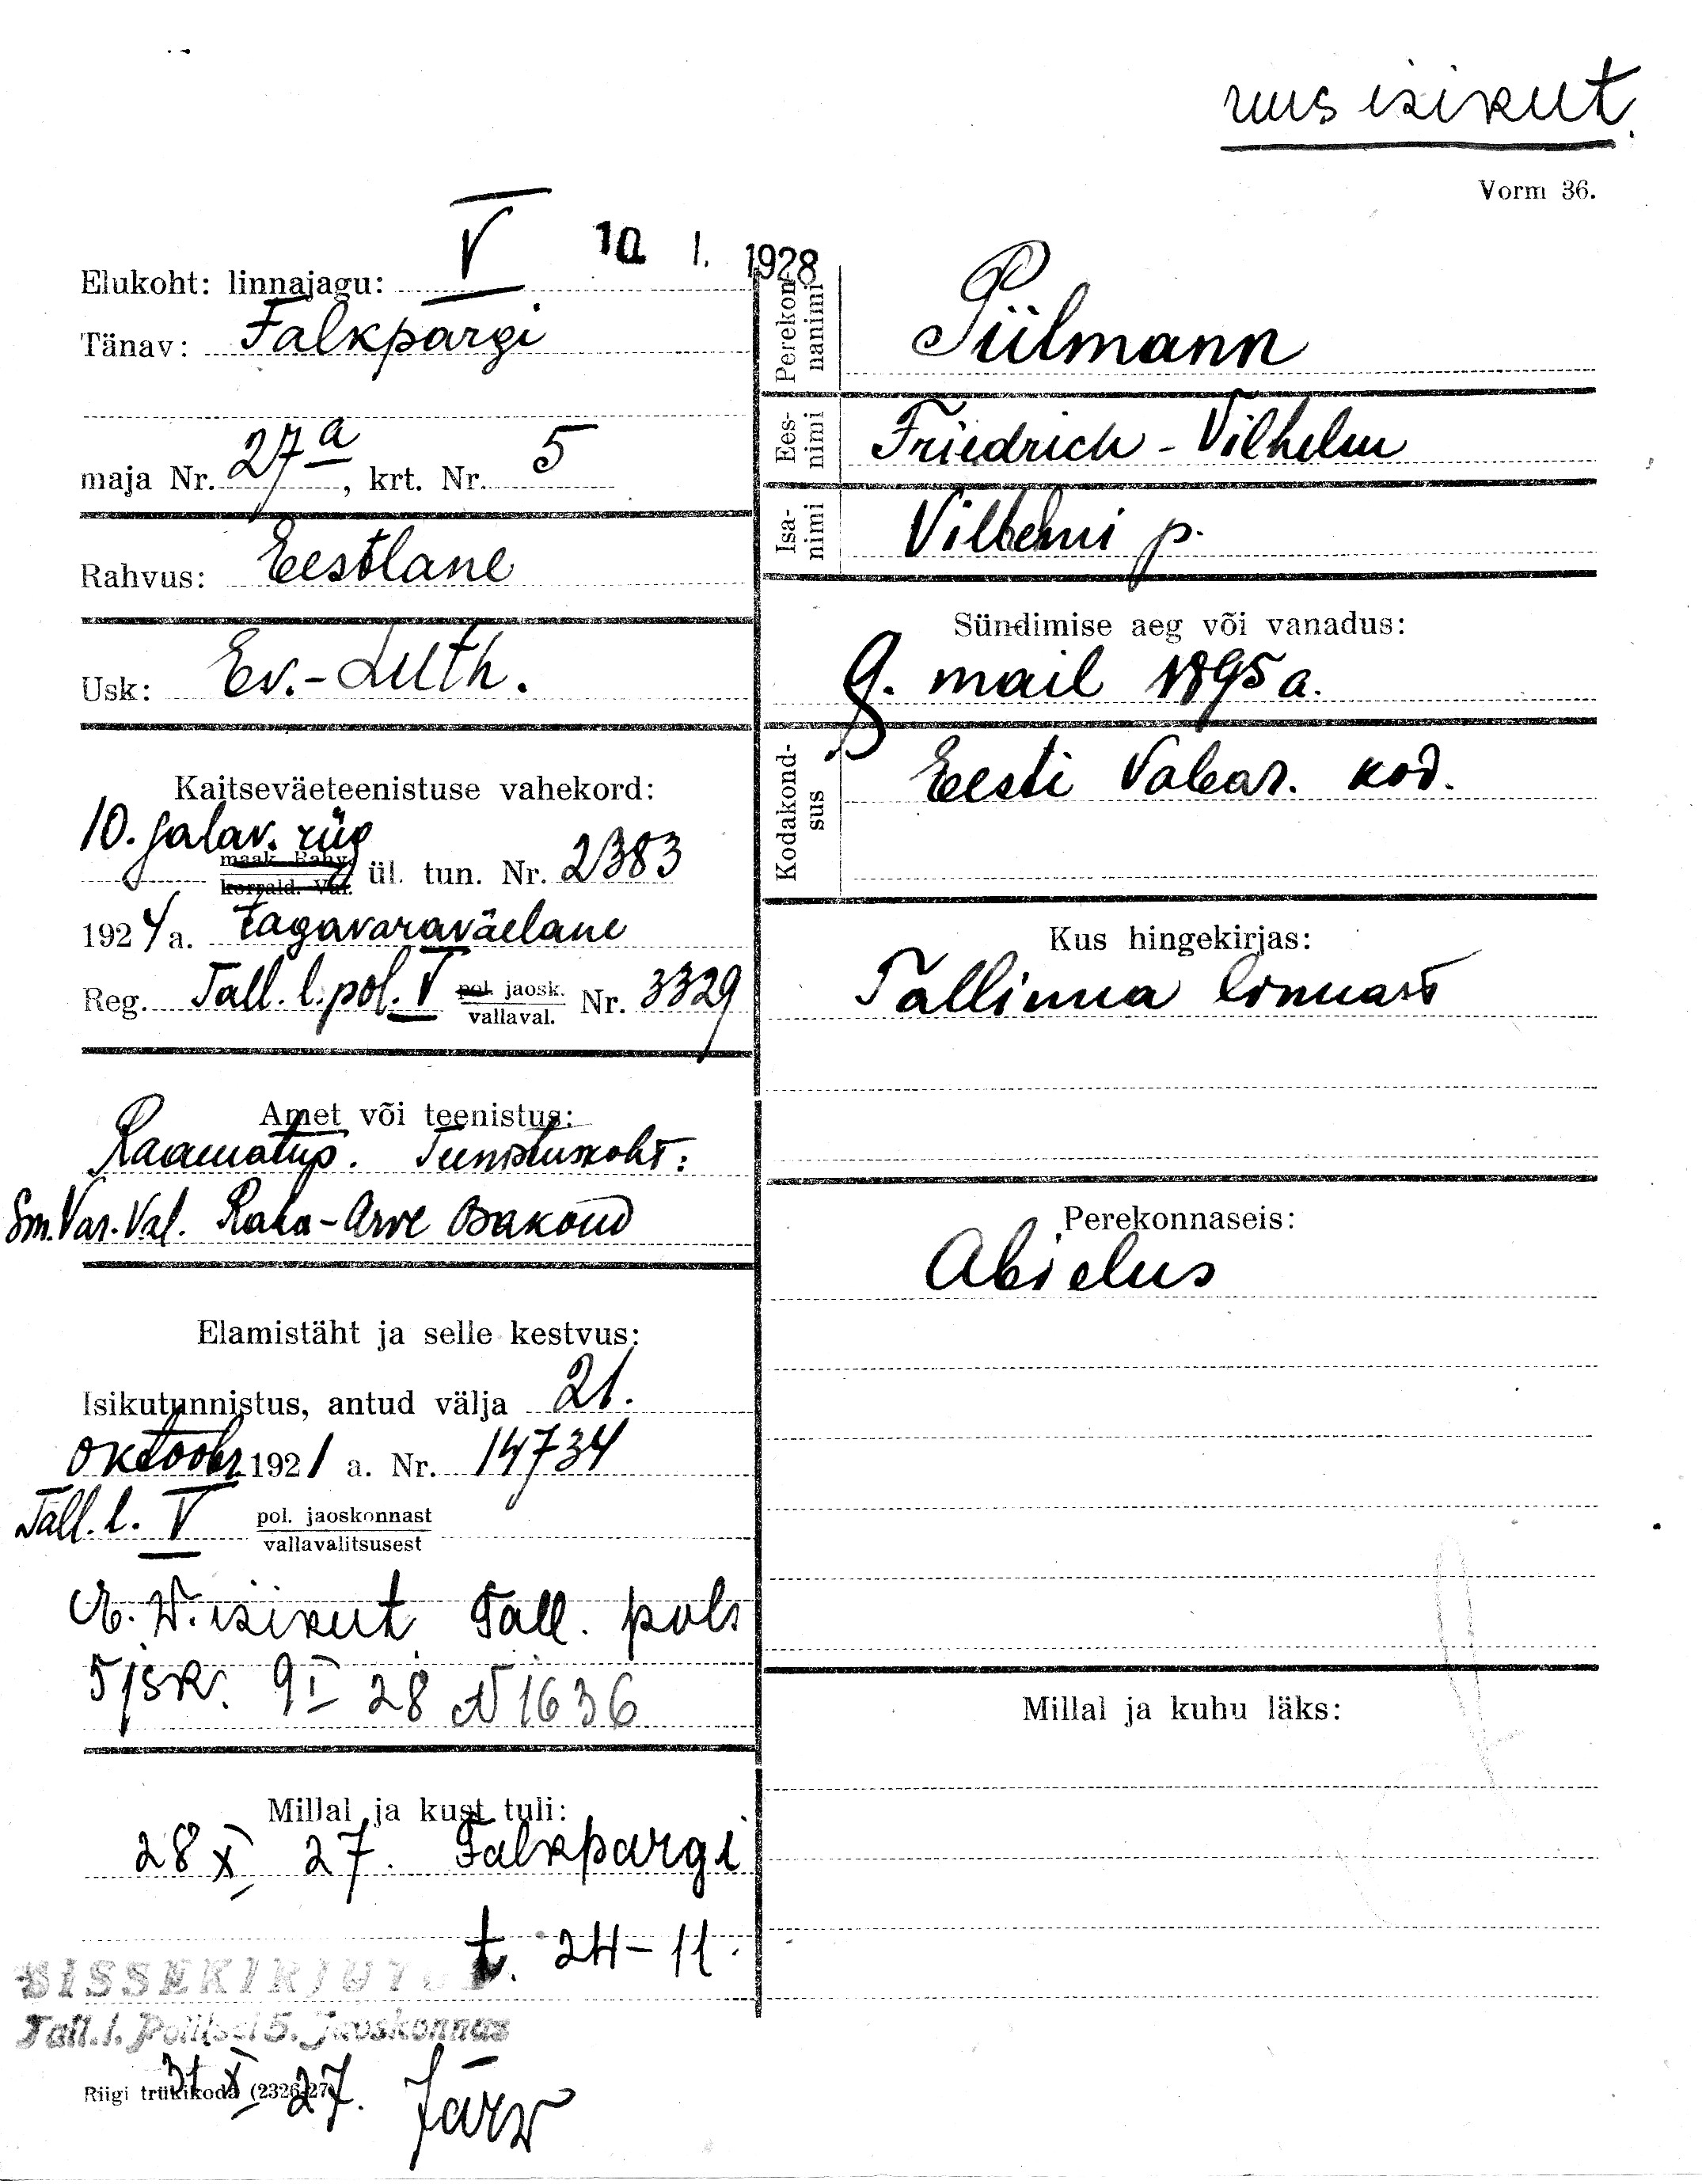 uus isikut.
Vorm 36.
10. I. 1928
Elukoht: linnajagu: V
Tänav: Falkpargi
maja Nr. 27a, krt. Nr. 5
Rahvus: Eestlane
Usk: Ev.-Luth.
Kaitseväeteenistuse vahekord:
10. jalav. rüg
maak. Rahv.
korrald. Val. ül. tun. Nr. 2383
1924 a. tagavaraväelane
Reg. Tall. l. pol. V pol. jaosk. Nr. 3329
vallaval.
Amet või teenistus:
Raamatup. Teenistuskoht:
Sm. Var. Val. Raha-Arve osakond
Elamistäht ja selle kestvus:
Isikutunnistus, antud välja 21.
oktoobr. 1921 a. Nr. 14734
Tall. l. V pol. jaoskonnast
vallavalitsusest
E. W. isikut. Tall. pols
5 jsk. 9 I 28 N 1636
Millal ja kust tuli:
28 X 27. Falkpargi
t. 24-11.
SISSEKIRJUTUD
Tall. l. Politsei 5. Jaoskonnas
31 X 27. Järv
Riigi trükikoda (2326-27)
Perekonnanimi
Piilmann
Eesnimi
Friedrich-Vilhelm
Isanimi
Vilhelmi p.
Sündimise aeg või vanadus:
9. mail 1895 a.
Kodakondsus
Eesti Vabar. kod.
Kus hingekirjas:
Tallinna linnas
Perekonnaseis:
Abielus
Millal ja kuhu läks: